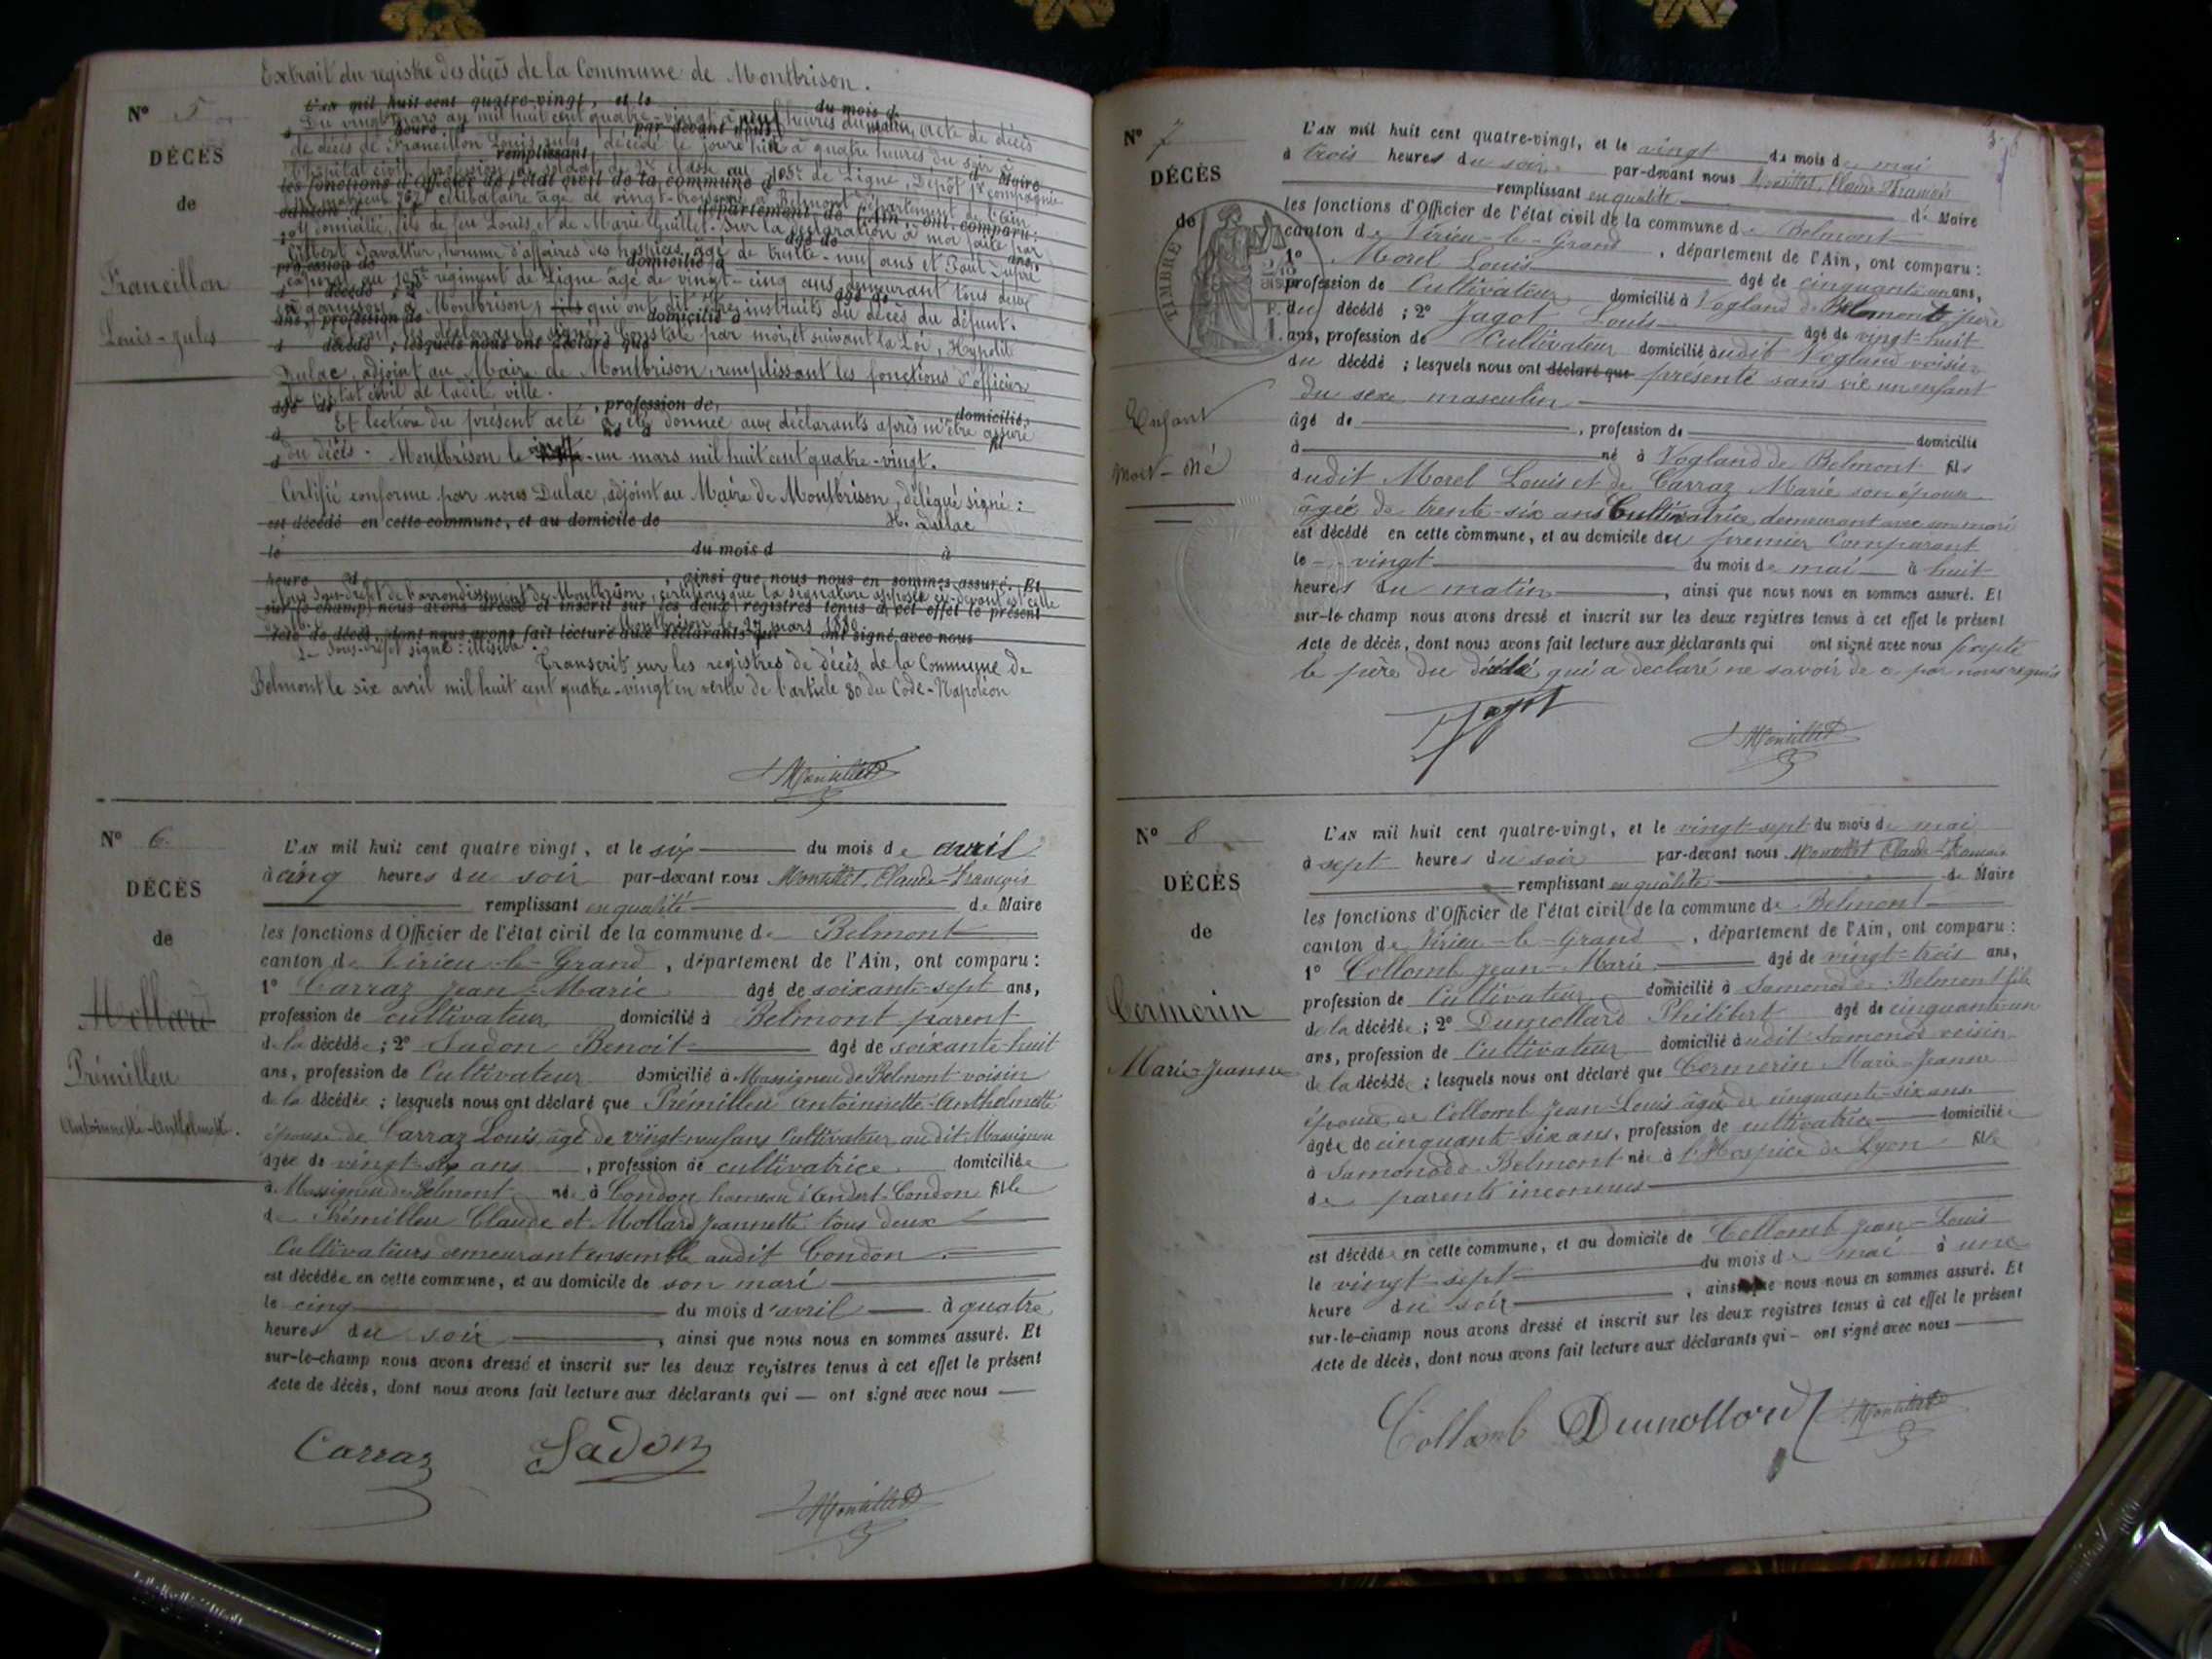 Extrait du registre des décès de la Commune de Montbrison.
N° 5
DÉCÈS
de
Francillon
Louis-Jules
L'AN mil huit cent quatre-vingt, et le du mois d
Du vingt mars an mil huit cent quatre-vingt à neuf heures du matin, acte de décès
heure d par-devant nous
de décès de Francillon Louis Jules décédé le jour hier à quatre heures du soir à
remplissant
l'hôpital civil, profession de soldat de 2e classe au 105e de Ligne, Dépôt, 1re compagnie
les fonctions d'Officier de l'état civil de la commune d Maire
célibataire âgé de vingt-trois ans, Belmont département de l'Ain
canton d département de l'Ain, ont comparu :
domicilié, fils de feu Louis et de Marie Guillet. Sur la déclaration à moi faite par
1° âgé de ans,
Gilbert Javallier, homme d'affaires des hospices, âgé de trente-neuf ans et Paul Dupré
profession de domicilié à
caporal au 105e régiment de Ligne âgé de vingt-cinq ans, demeurant tous deux
d décédé ; 2° âgé de
en garnison à Montbrison, qui ont dit être instruits du décès du défunt.
ans, profession de domicilié à
les déclarants signé. Constaté par moi, et suivant la Loi, Hypolite
d décédé ; lesquels nous ont déclaré que
Dulac, adjoint au Maire de Montbrison, remplissant les fonctions d'officier
de l'état civil de ladite ville.
âgé de , profession de domicilié
Et lecture du présent acte a été donnée aux déclarants après m'être assuré
à né à fil
du décès. Montbrison le vingt-un mars mil huit cent quatre-vingt.
d
Certifié conforme par nous Dulac, adjoint au Maire de Montbrison, délégué signé :
est décédé en cette commune, et au domicile de H. Dulac
le du mois d à
heure d ainsi que nous nous en sommes assuré. Et
Nous Sous-Préfet de l'arrondissement de Montbrison, certifions que la signature apposée ci-devant est celle
sur-le-champ nous avons dressé et inscrit sur les deux registres tenus à cet effet le présent
Montbrison le 27 mars 1880.
Acte de décès, dont nous avons fait lecture aux déclarants qui ont signé avec nous
Le Sous-Préfet signé : illisible.
Transcrit sur les registres de décès de la Commune de
Belmont le six avril mil huit cent quatre-vingt en vertu de l'article 80 du Code-Napoléon
Monsillet
N° 6
DÉCÈS
de
Mollard
Prémilleu
Antoinette-Anthelmette.
L'AN mil huit cent quatre vingt, et le six du mois de avril
à cinq heures du soir par-devant nous Monsillet, Claude-François
remplissant en qualité de Maire
les fonctions d'Officier de l'état civil de la commune de Belmont
canton de Virieu-le-Grand, département de l'Ain, ont comparu :
1° Carraz Jean-Marie âgé de soixante-sept ans,
profession de cultivateur domicilié à Belmont parent
de la décédée ; 2° Sadon Benoit âgé de soixante-huit
ans, profession de Cultivateur domicilié à Massigneu de Belmont voisin
de la décédée ; lesquels nous ont déclaré que Prémilleu Antoinette-Anthelmette
épouse de Carraz Louis, âgé de vingt-neuf ans Cultivateur audit Massigneu
âgée de vingt-six ans, profession de cultivatrice domiciliée
à Massigneu de Belmont née à Condon hameau d'Andert-Condon fille
de Prémilleu Claude et Mollard Jeannette tous deux
Cultivateurs demeurant ensemble audit Condon.
est décédée en cette commune, et au domicile de son mari
le cinq du mois d'avril à quatre
heures du soir, ainsi que nous nous en sommes assuré. Et
sur-le-champ nous avons dressé et inscrit sur les deux registres tenus à cet effet le présent
Acte de décès, dont nous avons fait lecture aux déclarants qui — ont signé avec nous —
Carraz Sadon
Monsillet
N° 7
DÉCÈS
de
TIMBRE
Enfant
Mort-Né
L'AN mil huit cent quatre-vingt, et le vingt du mois de mai
à trois heures du soir par-devant nous Monsillet, Claude François
remplissant en qualité de Maire
les fonctions d'Officier de l'état civil de la commune de Belmont
canton de Virieu-le-Grand, département de l'Ain, ont comparu :
1° Morel Louis âgé de cinquante un ans,
profession de Cultivateur domicilié à Vogland de Belmont père
du décédé ; 2° Jagot Louis âgé de vingt-huit
ans, profession de Cultivateur domicilié audit Vogland voisin
du décédé ; lesquels nous ont déclaré que présenté sans vie un enfant
du sexe masculin
âgé de , profession de domicilié
à né à Vogland de Belmont fils
dudit Morel Louis et de Carraz Marie son épouse
âgée de trente-six ans Cultivatrice, demeurant avec son mari
est décédé en cette commune, et au domicile du premier Comparant
le vingt du mois de mai à huit
heures du matin, ainsi que nous nous en sommes assuré. Et
sur-le-champ nous avons dressé et inscrit sur les deux registres tenus à cet effet le présent
Acte de décès, dont nous avons fait lecture aux déclarants qui ont signé avec nous excepté
le père du décédé qui a déclaré ne savoir de ce par nous requis
Jagot Monsillet
N° 8
DÉCÈS
de
Cermorin
Marie-Jeanne
L'AN mil huit cent quatre-vingt, et le vingt-sept du mois de mai
à sept heures du soir par-devant nous Monsillet Claude-François
remplissant en qualité de Maire
les fonctions d'Officier de l'état civil de la commune de Belmont
canton de Virieu-le-Grand, département de l'Ain, ont comparu :
1° Collomb Jean-Marie âgé de vingt-trois ans,
profession de Cultivateur domicilié à Samonod de Belmont fils
de la décédée ; 2° Dumollard Philibert âgé de cinquante un
ans, profession de Cultivateur domicilié audit Samonod voisin
de la décédée ; lesquels nous ont déclaré que Cermorin Marie-Jeanne
épouse de Collomb Jean-Louis âgé de cinquante-six ans
âgée de cinquante-six ans, profession de cultivatrice domiciliée
à Samonod de Belmont née à l'Hospice de Lyon fille
de parents inconnus
est décédée en cette commune, et au domicile de Collomb Jean-Louis
le vingt-sept du mois de mai à une
heure du soir, ainsi que nous nous en sommes assuré. Et
sur-le-champ nous avons dressé et inscrit sur les deux registres tenus à cet effet le présent
Acte de décès, dont nous avons fait lecture aux déclarants qui — ont signé avec nous —
Collomb Dumollard Monsillet